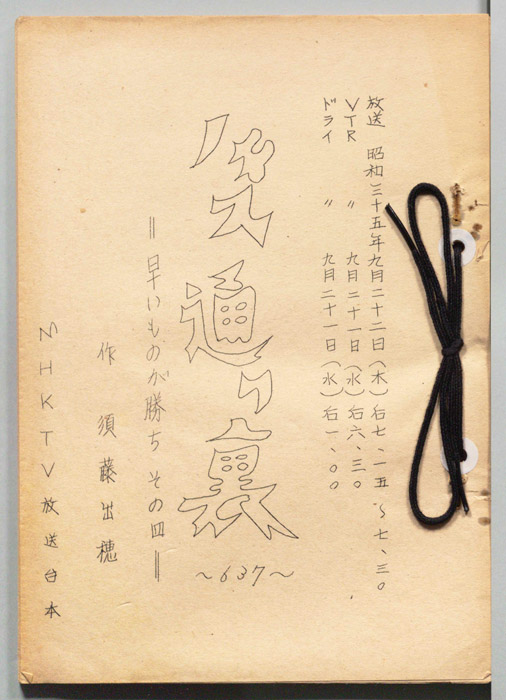 放送 昭和三十五年九月二十二日(木)后七、一五〜七、三〇
VTR 〃 九月二十一日(水)后六、三〇
ドライ 〃 九月二十一日(水)后一、〇〇
バス通り裏
〜637〜
=早いものが勝ち その四=
作 須藤出穂
NHKTV放送台本